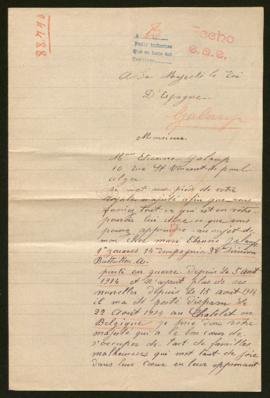 88.440
A
Pedir informes
Hecho
A Sa Majesté le Roi
D'Espagne
Galaup
Monsieur
Mme Etienne Galaup
10 rue St Vincent de paul
alger
je met aux pieds de votre
majesté afin que vous
fassiez tout ce qui est en votre
pouvoir
pour apprendre au sujet de
mon cher mari Etienne Galaup
zouaves 14e compagnie 38e Division
Battallon
parti en guerre depuis le 5 août
1914 et n'ayant plus de ses
nouvelles depuis le 18 août 1914
il m'a été porté disparu le
22 Août 1914 au Chatelet en
Belgique je prie donc votre
majesté qui a le bon cœur de
s'occuper de tant de familles
malheureuses qui met tant de joie
dans leur cœur en leur apprenant